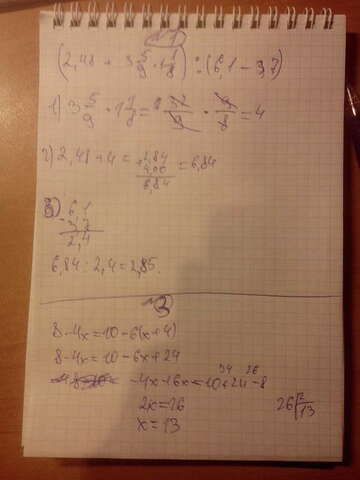 N1
(2,48 + 3 5/9 · 1 1/8) : (6,1 - 3,7)
1) 3 5/9 · 1 1/8 = 32/9 · 9/8 = 4
2) 2,48 + 4 = 2,84
+ 4,00
6,84 = 6,84
3) 6,1
- 3,7
2,4
6,84 : 2,4 = 2,85.
N3
8 - 4x = 10 - 6(x + 4)
8 - 4x = 10 - 6x + 24
-4x + 6x = 10 + 24 - 8
34 26
2x = 26
x = 13
26 2
13